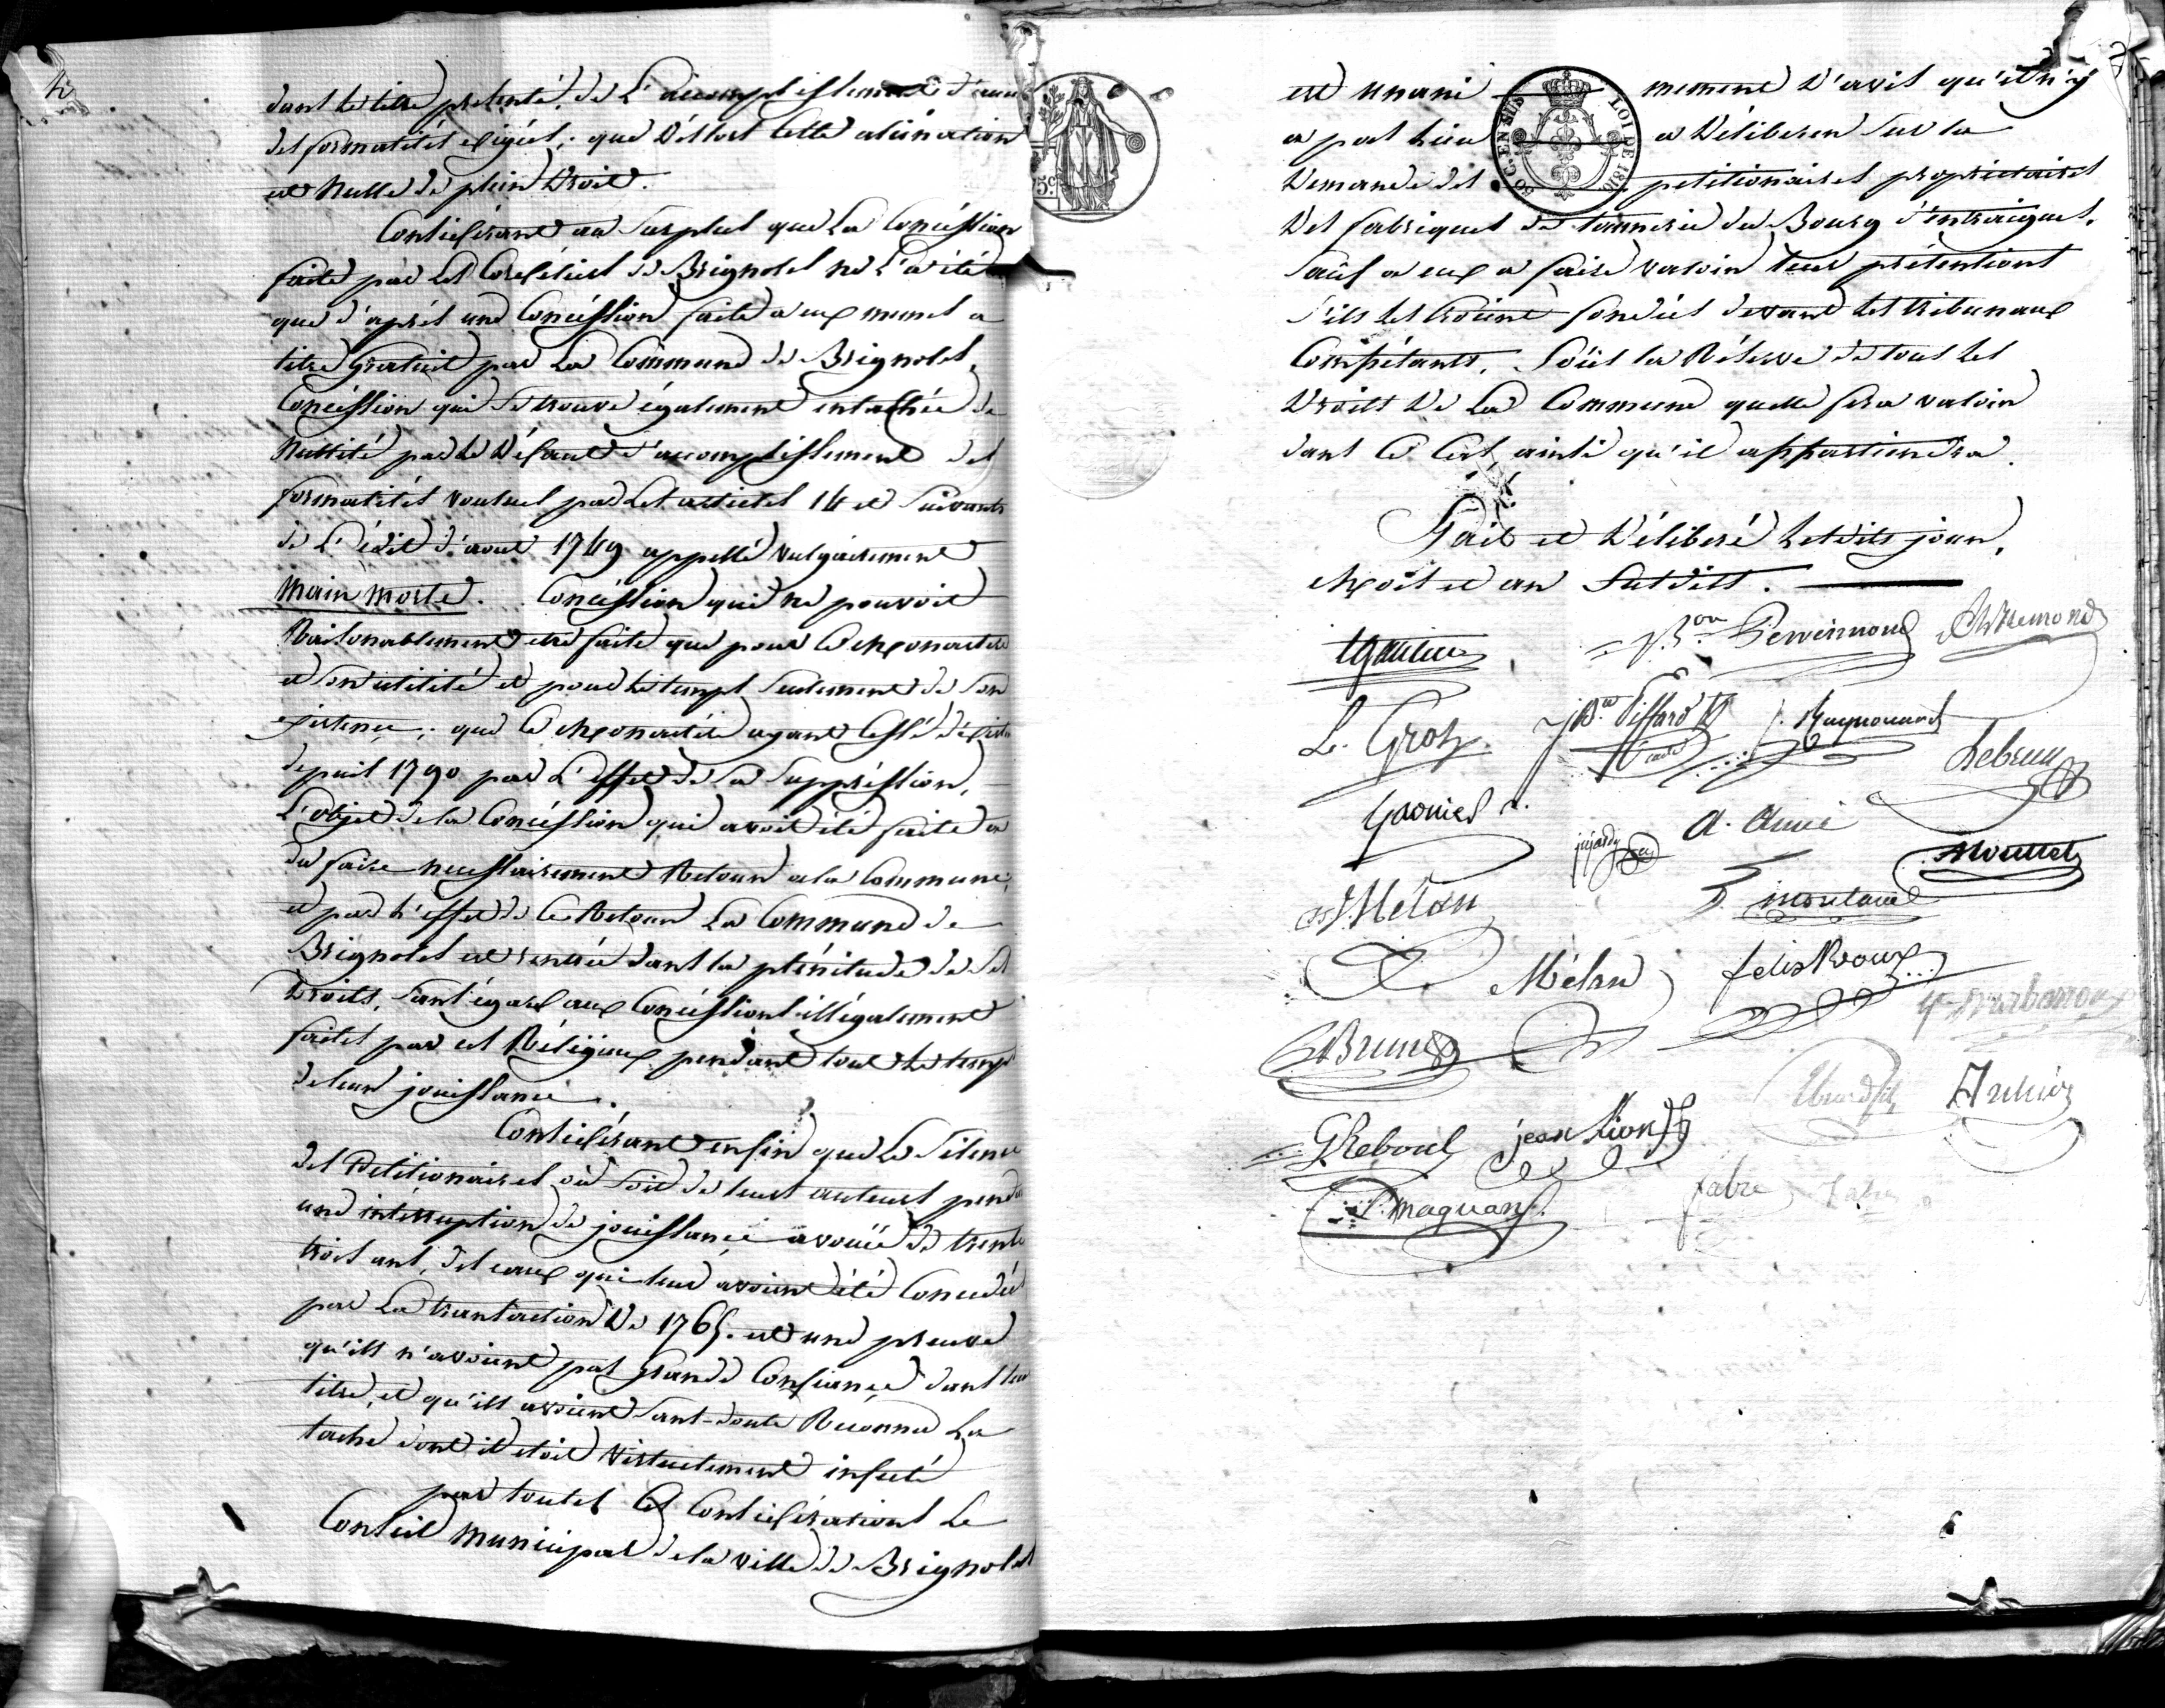 dans le titre présenté, de L'accomplissement d'aucune
des formalités exigées; que dès lors cette aliénation
est Nulle de plein Droit.
Considérant au Surplus que La Concéssion
faite par Les Cordeliers de Brignoles ne L'a été
que d'après une Concéssion faite a eux mêmes a
titre gratuit par La Commune de Brignoles,
Concéssion qui se trouve également entachée de
Nullité par le Défaut d'accomplissement des
formalités voulues par Les articles 14 et Suivants
de L'édit d'aout 1749 appellé vulgairement
main morte. Concéssion qui ne pouvoit
Raisonablement etre faite que pour Ce Monastère
et son utilité et pour le temps Seulement de Son
existence; que Ce Monastère ayant Cessé d'éxister
depuis 1790 par L'effet de Sa Suppréssion,
L'objet de la Concéssion qui avoit été faite a
du faire nécessairement Retour a la Commune,
et par L'effet de Ce Retour La Commune de
Brignoles est rentrée dans la plénitude de Ses
Droits, Sans égard aux Concéssions illégalement
faites par les Réligieux pendant tout Le temps
de leur jouissance.
Considérant enfin que Le Silence
des Petitionaires où Soit de leurs auteurs pendant
une intérruption de jouissance avouée de trente
trois ans, des eaux qui leur avoient été Concédées
par La transaction De 1765. est une preuve
qu'ils n'avoient pas grande Confiance dans leur
titre, et qu'ils avoient Sans-doute Reconnu La
tache dont il etoit virtuelement infecté
par toutes Ces Considérations Le
Conseil Municipal de la ville de Brignoles
est unani mement D'avis qu'il n'y
a pas Lieu a Déliberer Sur la
Demande des petitionaires propriétaires
Des fabriques de tannerie du Bourg d'entraigues,
Sauf a eux a faire valoir leurs prétentions
S'ils les croient fondées devant les tribunaux
Compétants. Sous la Réserve de tous Les
Droits De La Commune quelle fera valoir
dans Ce Cas, ainsi qu'il appartiendra.
Fait et Déliberé Lesdits jour,
Mois et an Susdits.
60 C. EN SUS LOI DE 1816
L. Gros
J. Raynouard
Lebrun
Garnier
A. Amic
Mouttet
Mélan
Montaud
Mélan
felix Roux
Brun
G Reboul
jean Lion
Maquan
fabre